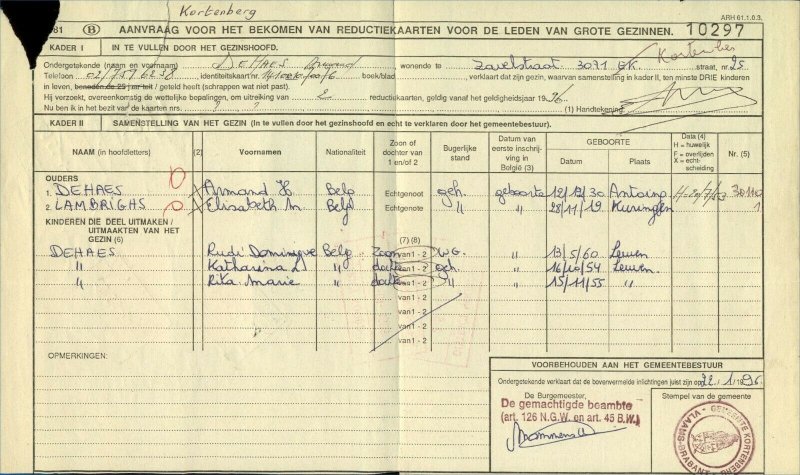 Kortenberg
ARH 61.1.0.3.
81 B AANVRAAG VOOR HET BEKOMEN VAN REDUCTIEKAARTEN VOOR DE LEDEN VAN GROTE GEZINNEN. 10297
KADER I IN TE VULLEN DOOR HET GEZINSHOOFD.
Ondergetekende (naam en voornaam) DEHAES Armand wonende te Zavelstraat 3071 EK. straat, nr. 25
Telefoon 02/757 62 58 identiteitskaart nr. boek/blad verklaart dat zijn gezin, waarvan samenstelling in kader II, ten minste DRIE kinderen
in leven, beneden de 25 jaar telt / geteld heeft (schrappen wat niet past).
Hij verzoekt, overeenkomstig de wettelijke bepalingen, om uitreiking van 2 reductiekaarten, geldig vanaf het geldigheidsjaar 1996.
Nu ben ik in het bezit van de kaarten nrs. (1) Handtekening
KADER II SAMENSTELLING VAN HET GEZIN (In te vullen door het gezinshoofd en echt te verklaren door het gemeentebestuur).
NAAM (in hoofdletters) (2) Voornamen Nationaliteit Zoon of dochter van 1 en/of 2 Bugerlijke stand Datum van eerste inschrijving in België (3) GEBOORTE Datum Plaats Data (4) H = huwelijk F = overlijden X = echtscheiding Nr. (5)
OUDERS
1. DEHAES Armand H Belg Echtgenoot geh. geboorte 12/12/30 Antoing 30110
2. LAMBRIGHS Elisabeth M Belg Echtgenote " " 28/11/29 Kuringen 1
KINDEREN DIE DEEL UITMAKEN / UITMAAKTEN VAN HET GEZIN (6) (7) (8)
DEHAES Rudi Dominique Belg Zoon van 1 - 2 WG. " 13/5/60 Leuven
" Katharina L " dochter van 1 - 2 geh. " 16/10/54 Leuven.
" Rita Marie " dochter van 1 - 2 " " 15/11/55 "
van 1 - 2
van 1 - 2
van 1 - 2
van 1 - 2
OPMERKINGEN:
VOORBEHOUDEN AAN HET GEMEENTEBESTUUR
Ondergetekende verklaart dat de bovenvermelde inlichtingen juist zijn op 22.1.1996.
De Burgemeester, Stempel van de gemeente
De gemachtigde beambte
(art. 126 N.G.W. en art. 45 B.W.)
GEMEENTE KORTENBERG
VLAAMS-BRABANT